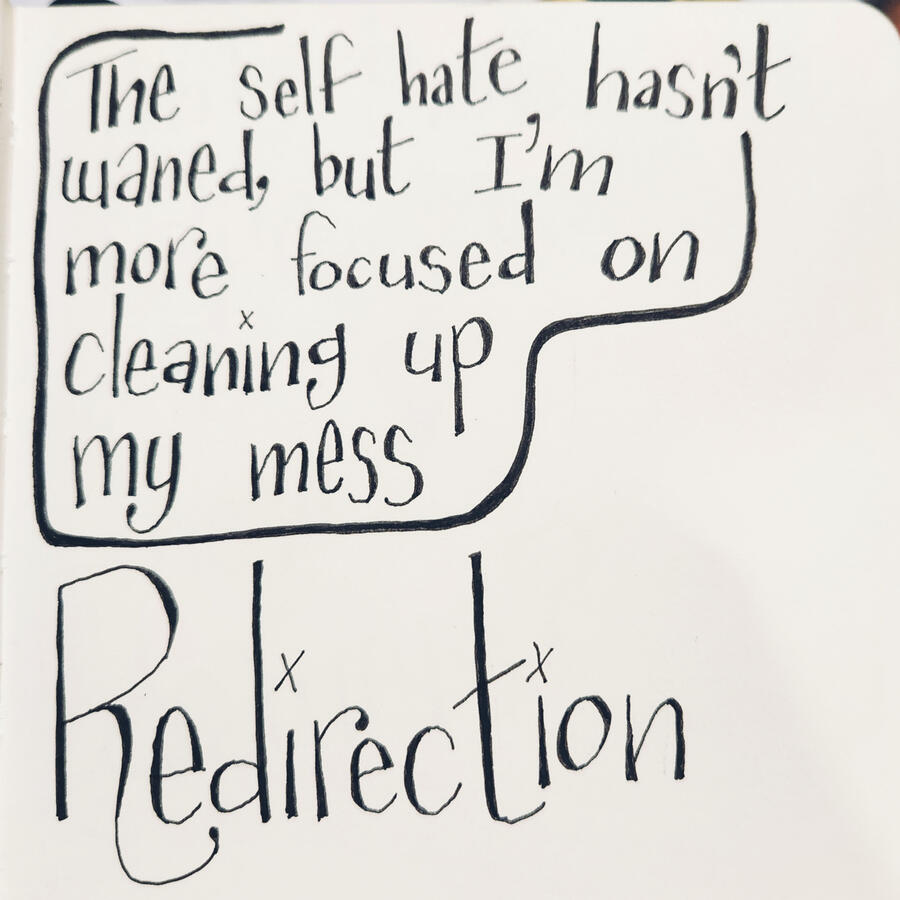 The self hate hasn't
waned, but I'm
more focused on
cleaning up
my mess
Redirection